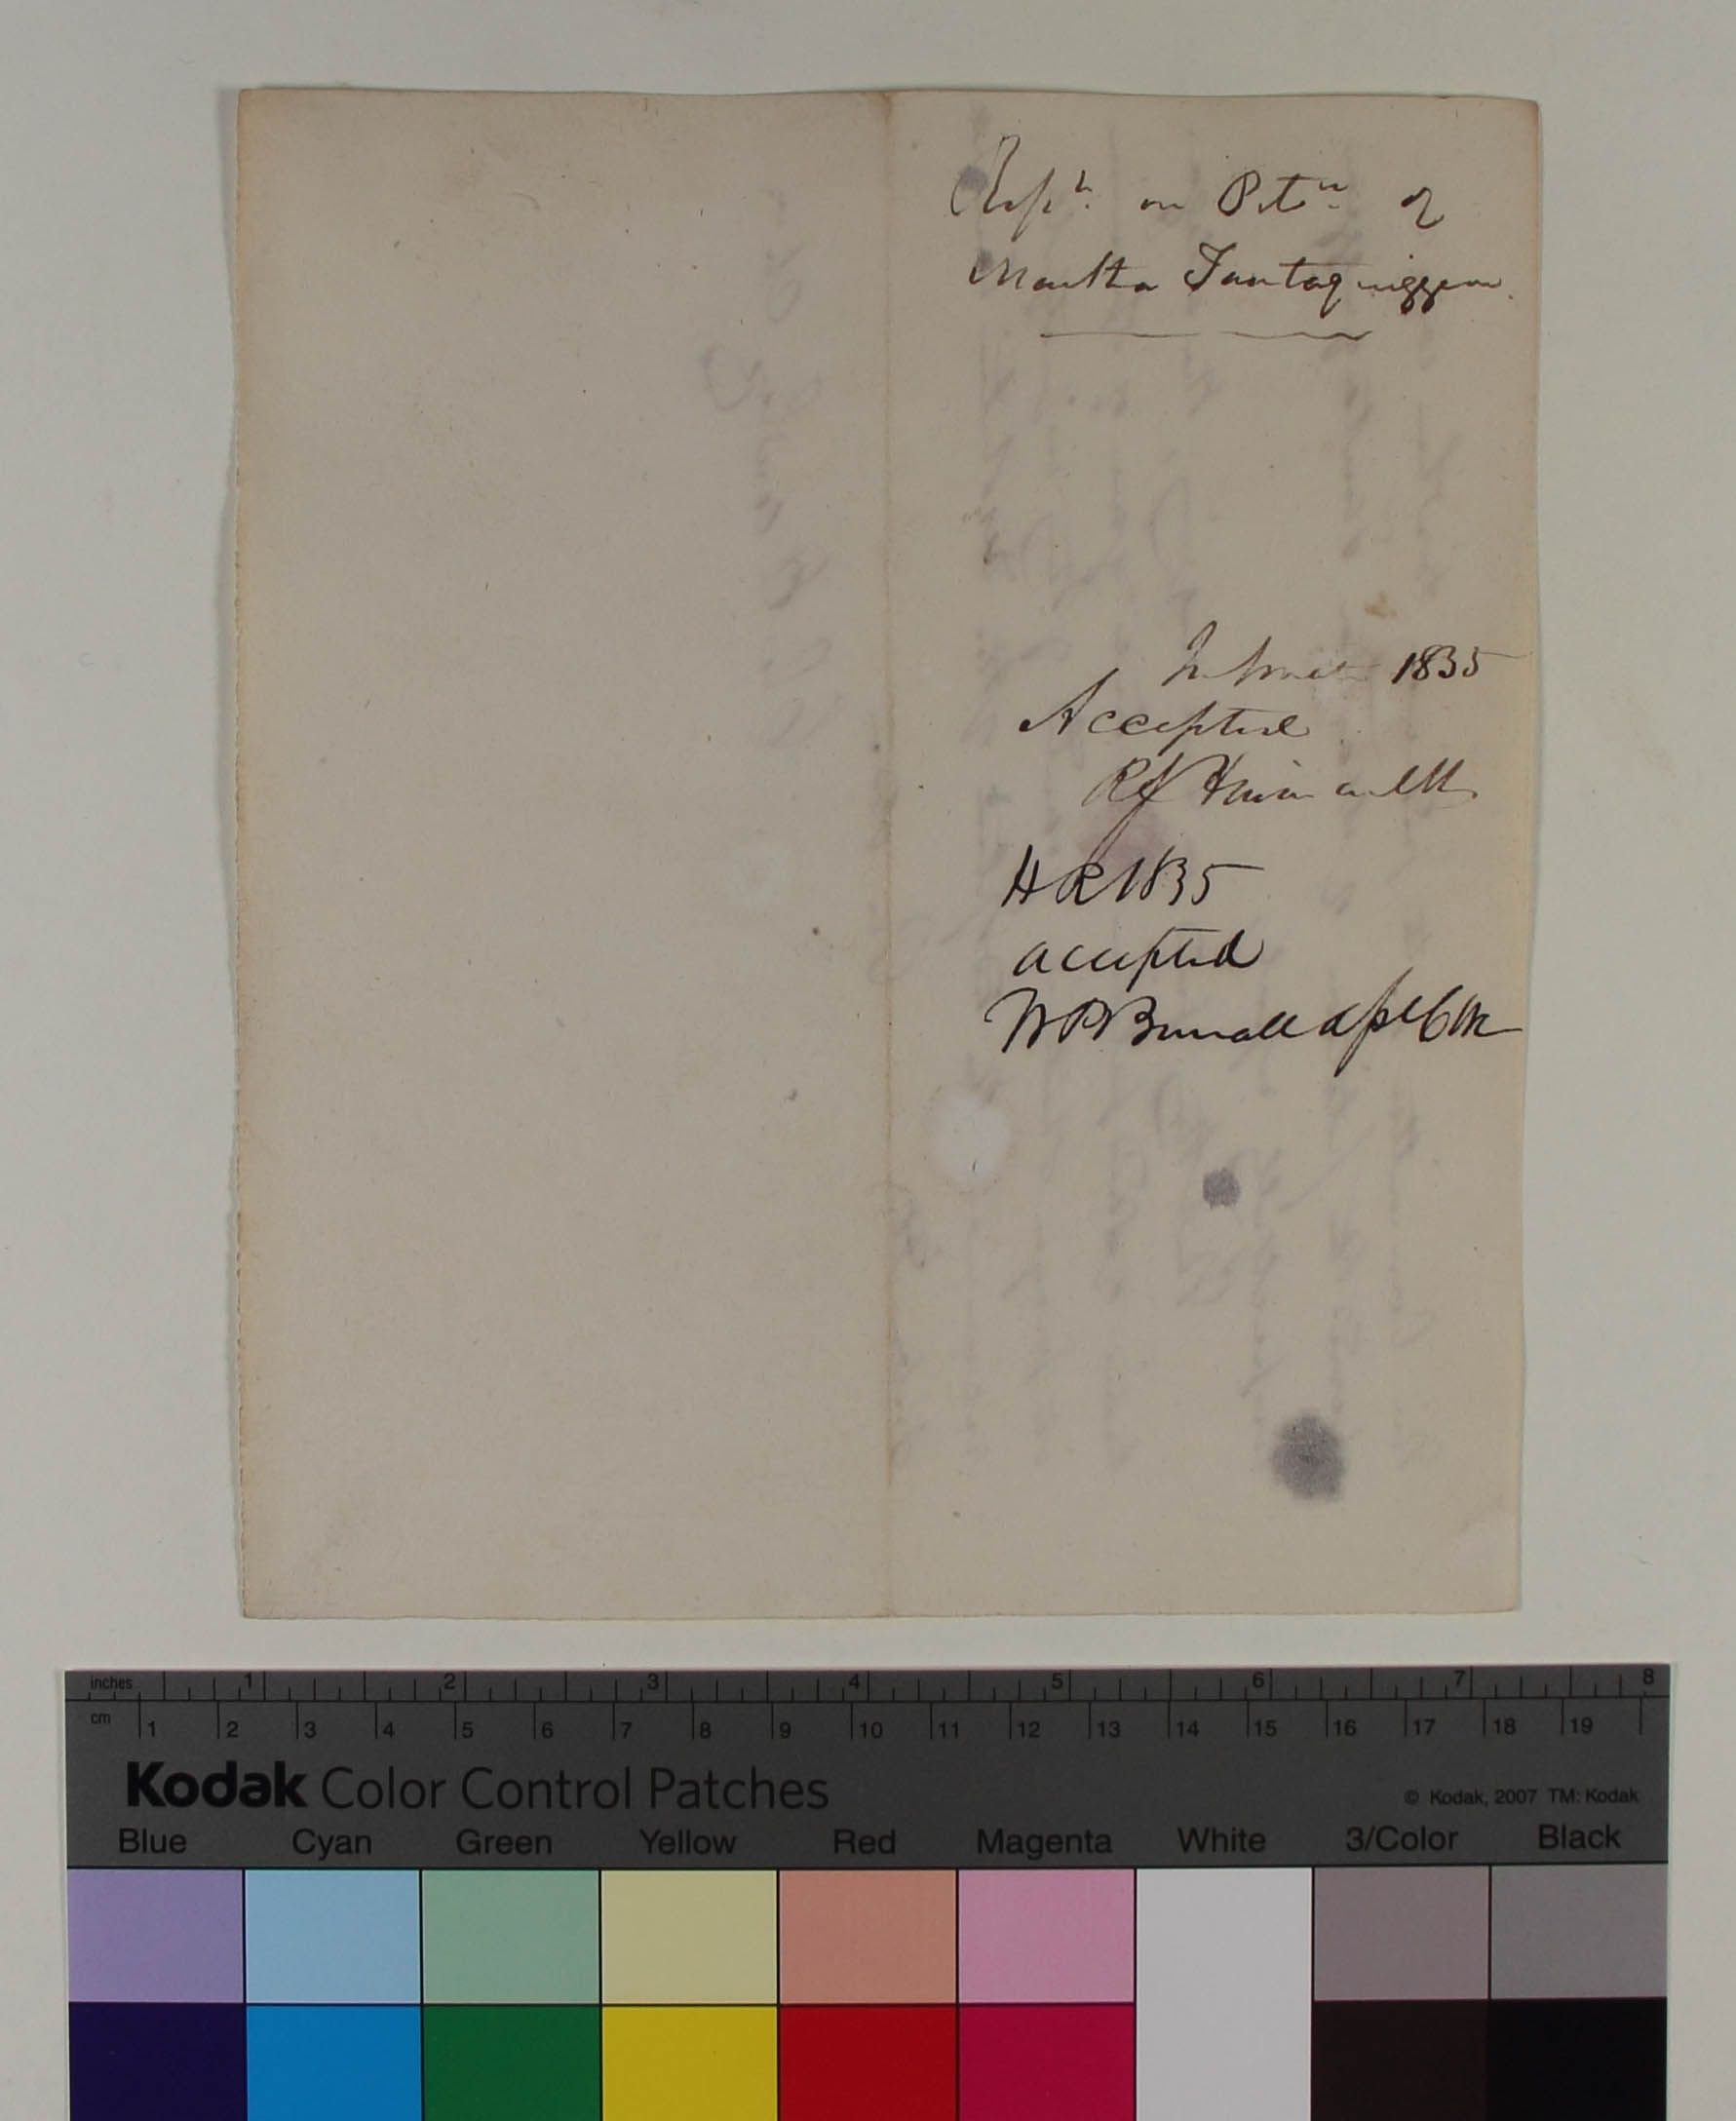 Rept. on Petn. of
Martha Tantaquiggen.
In Senate 1835
Accepted
R Hinman Clk
H R 1835
accepted
W P Burrall Clk
inches 1 2 3 4 5 6 7 8
cm 1 2 3 4 5 6 7 8 9 10 11 12 13 14 15 16 17 18 19
Kodak Color Control Patches
© Kodak, 2007 TM: Kodak
Blue Cyan Green Yellow Red Magenta White 3/Color Black